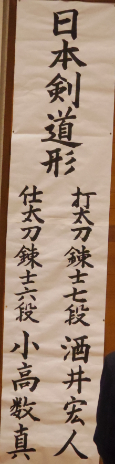 日本剣道形
打太刀錬士七段 酒井宏人
仕太刀錬士六段 小高数真